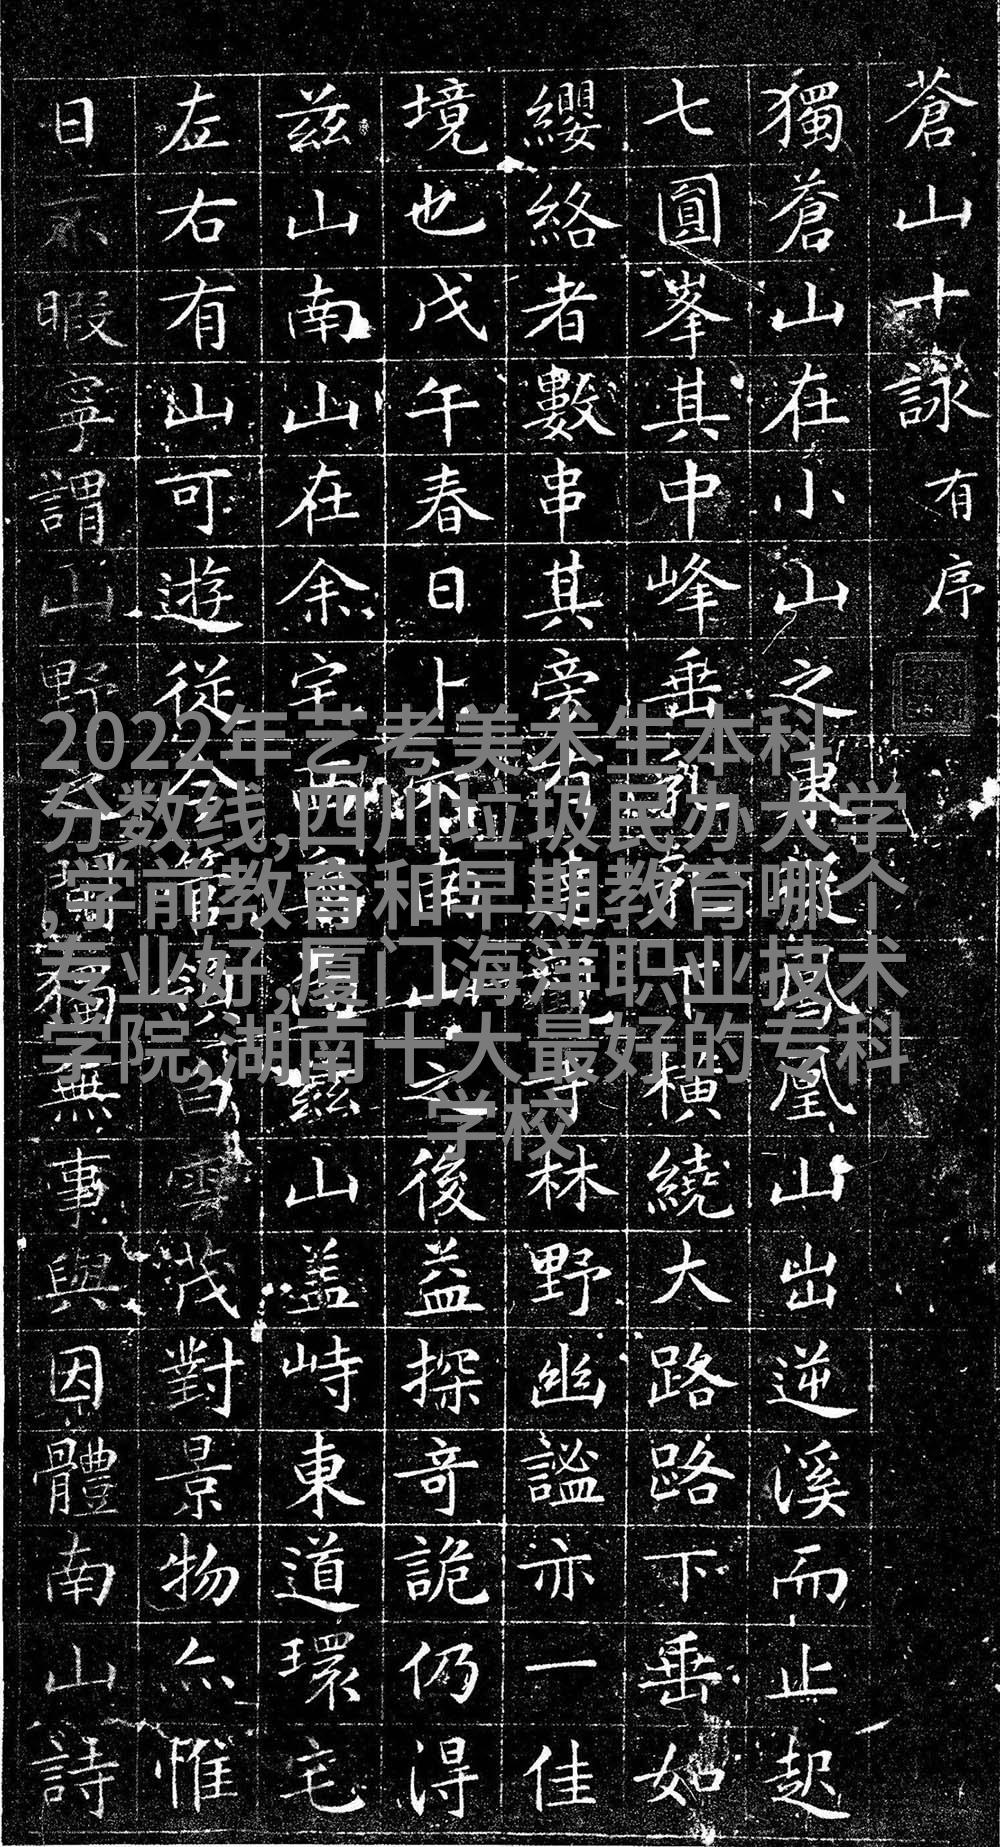 蒼山十詠有序
獨蒼山在小山之東鳳凰山出逆溪而止起
七圓峯其中峰垂下橫繞大路路下垂如
纓絡者數串其旁有寺林野幽謐亦一佳
境也戊午春日卜南山之後益探奇詭仍得
茲山南山在余宅西茲山蓋峙東道環宅
左右有山可遊從今對景物亦惟
日不暇寧謂山野之獨無事與因體南山詩
2022年艺考美术生本科
分数线,四川垃圾民办大学
,学前教育和早期教育哪个
专业好,厦门海洋职业技术
学院,湖南十大最好的专科
学校